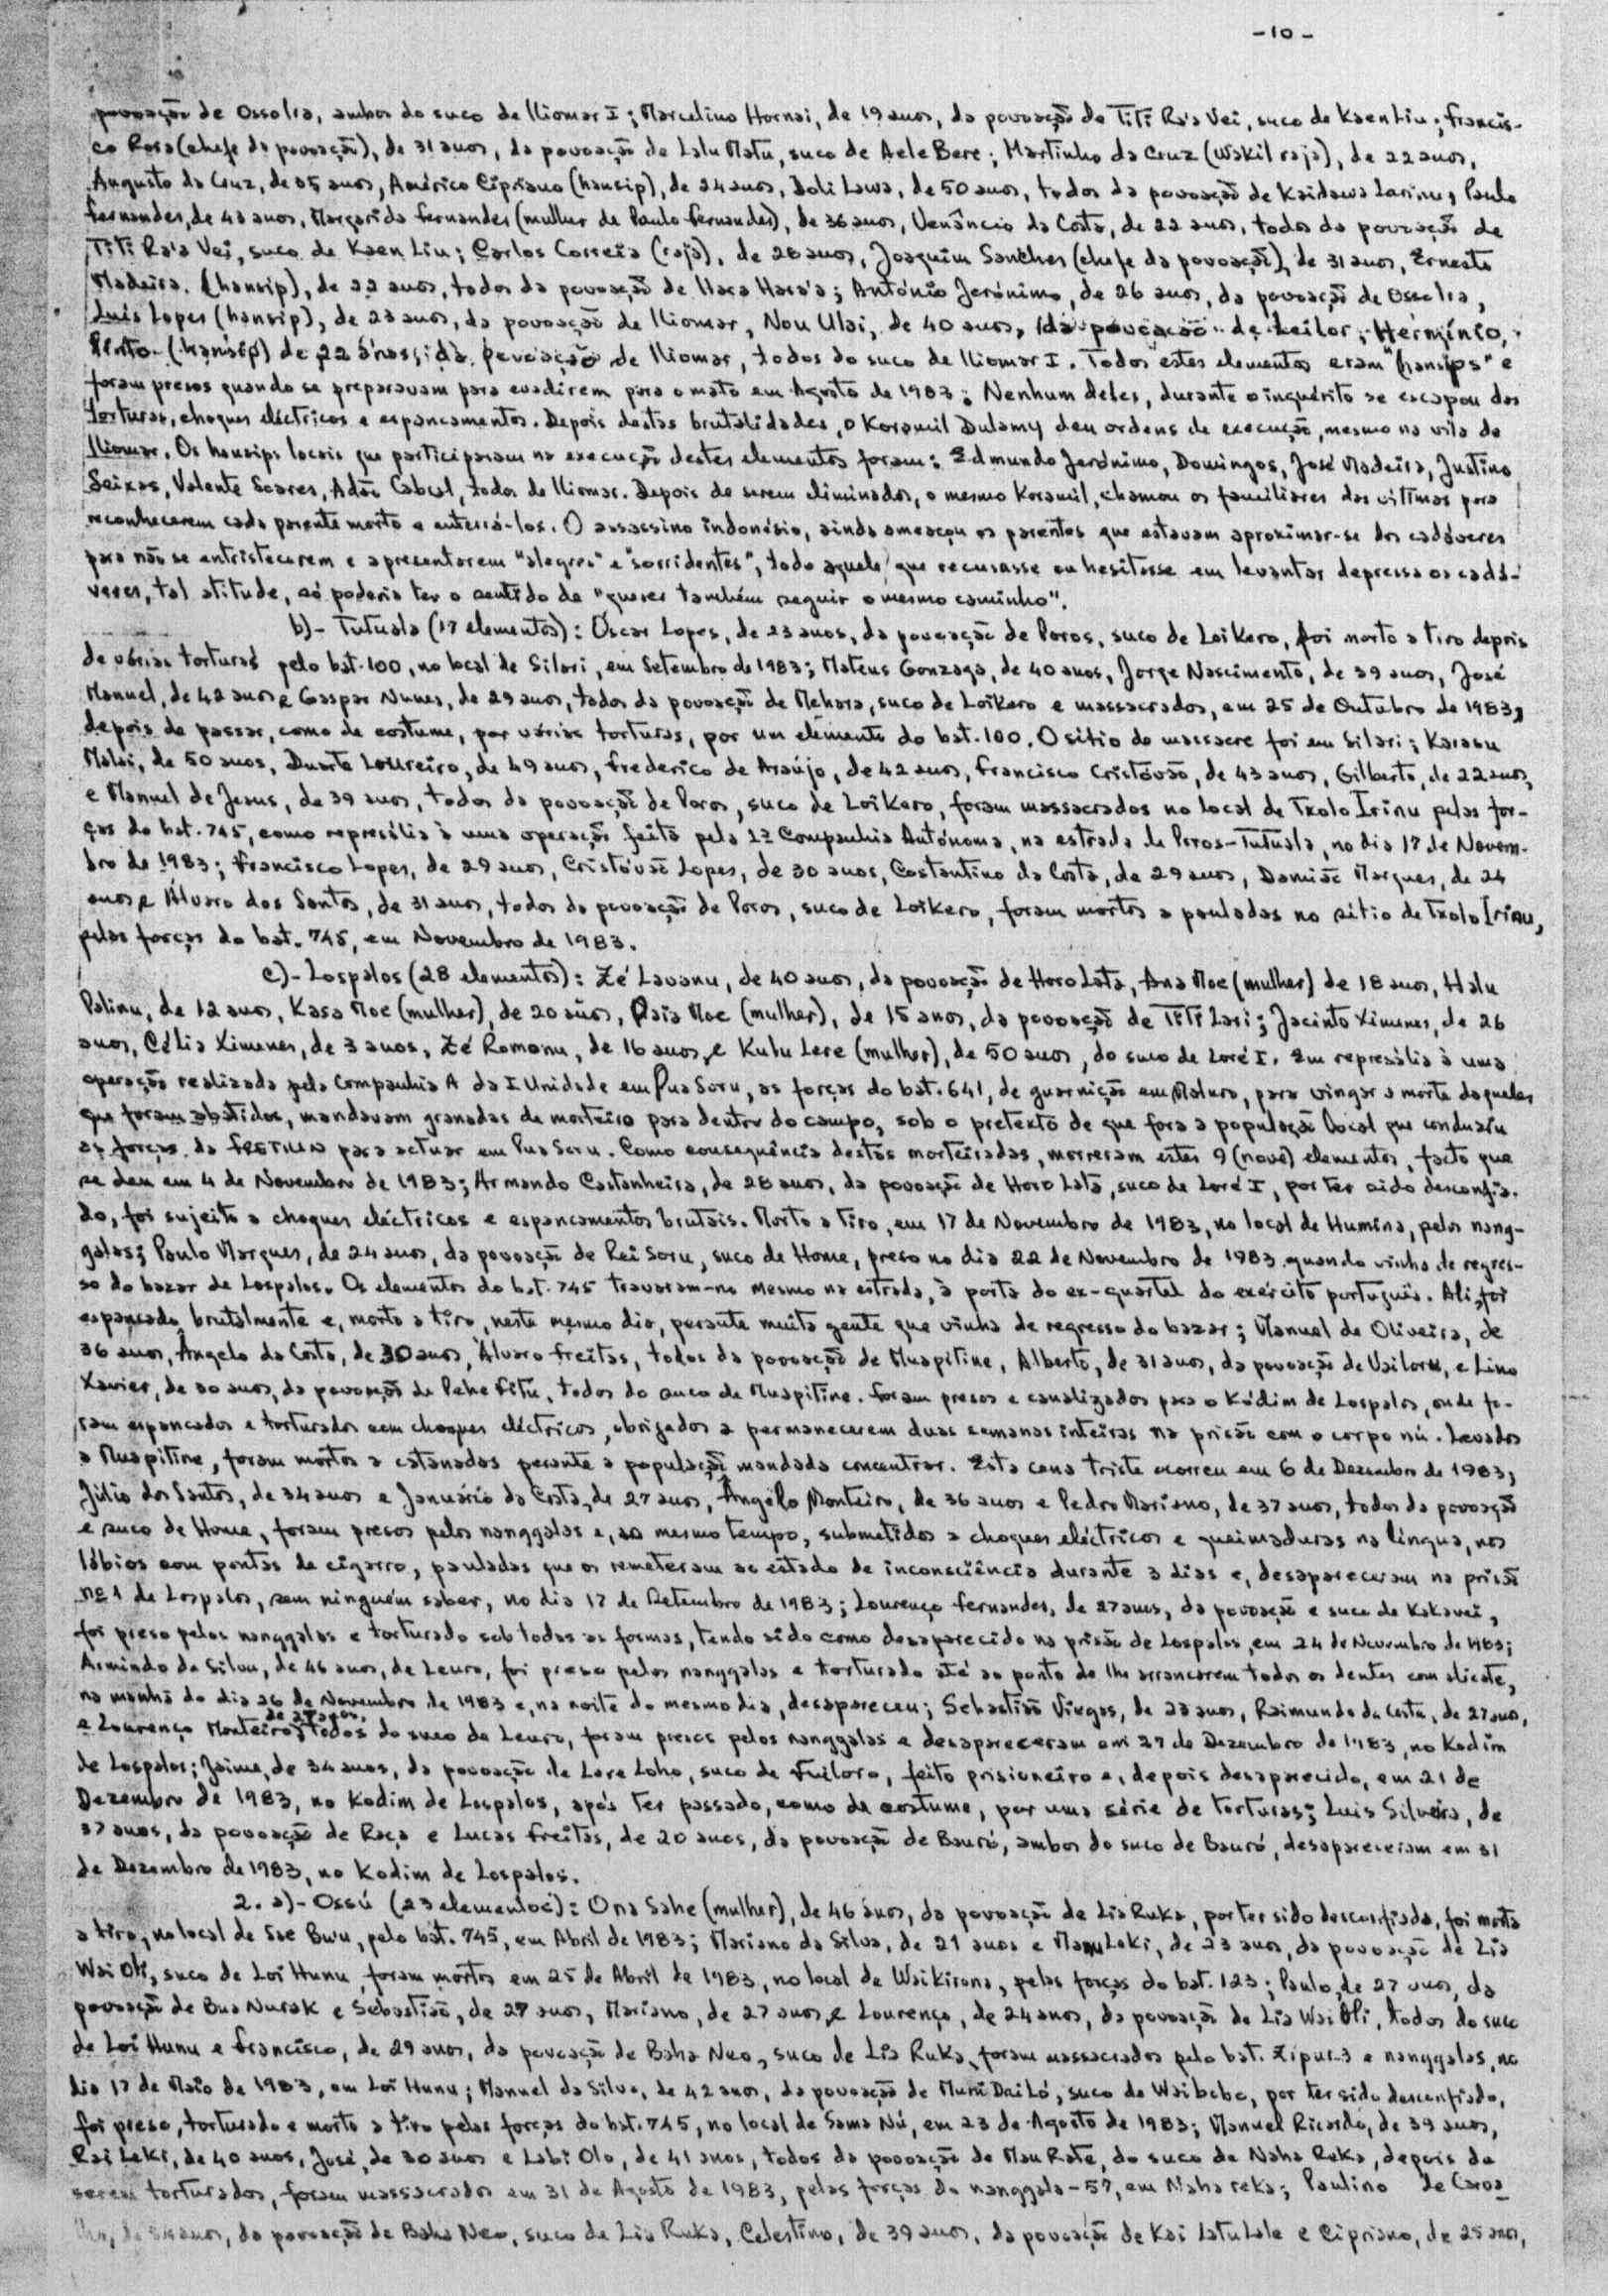 -10-
povoação de Ossolia, ambos do suco de Iliomar I; Marcelino Hornai, de 19 anos, da povoação de Titi Ra'a Vei, suco de Kaen Liu; Francis-
co Rosa (chefe da povoação), de 31 anos, da povoação de Lalu Matu, suco de Aele Bere; Martinho da Cruz (Wakil raja), de 22 anos,
Augusto da Cruz, de 35 anos, Américo Cipriano (hansip), de 24 anos, Doli Lawa, de 50 anos, todos da povoação de Kaidawa Larinu, Paulo
Fernandes, de 43 anos, Margarida Fernandes (mulher de Paulo Fernandes), de 36 anos, Venâncio da Costa, de 22 anos, todos da povoação de
Titi Ra'a Vei, suco de Kaen Liu; Carlos Correia (raja), de 28 anos, Joaquim Sanches (chefe da povoação), de 31 anos, Ernesto
Madeira (hansip), de 22 anos, todos da povoação de Haca Hara'a; António Jerónimo, de 26 anos, da povoação de Ossolia,
Luís Lopes (hansip), de 23 anos, da povoação de Iliomar, Nou Ulai, de 40 anos, da povoação de Leilor, Hermínio,
Pinto (hansip) de 22 anos, da povoação de Iliomar, todos do suco de Iliomar I. Todos estes elementos eram "hansips" e
foram presos quando se preparavam para evadirem para o mato em Agosto de 1983; Nenhum deles, durante o inquérito se escapou das
torturas, choques eléctricos e espancamentos. Depois destas brutalidades, o Koramil Dulamy deu ordens de execução, mesmo na vila de
Iliomar. Os hansips locais que participaram na execução destes elementos foram: Edmundo Jerónimo, Domingos, José Madeira, Justino
Seixas, Valente Soares, Adão Cabral, todos de Iliomar. Depois de serem eliminados, o mesmo Koramil, chamou os familiares das vítimas para
reconhecerem cada parente morto e enterrá-los. O assassino indonésio, ainda ameaçou os parentes que estavam aproximar-se dos cadáveres
para não se entristecerem e apresentarem "alegres" e "sorridentes", todo aquele que recusasse ou hesitasse em levantar depressa os cadá-
veres, tal atitude, só poderia ter o sentido de "querer também seguir o mesmo caminho".
b)- Tutuala (17 elementos): Óscar Lopes, de 23 anos, da povoação de Poros, suco de Loikero, foi morto a tiro depois
de várias torturas pelo bat. 100, no local de Silari, em Setembro de 1983; Mateus Gonzaga, de 40 anos, Jorge Nascimento, de 39 anos, José
Manuel, de 42 anos e Gaspar Nunes, de 29 anos, todos da povoação de Mehara, suco de Loikero e massacrados, em 25 de Outubro de 1983,
depois de passar, como de costume, por várias torturas, por um elemento do bat. 100. O sítio do massacre foi em Silari; Karasu
Malai, de 50 anos, Duarte Loureiro, de 49 anos, Frederico de Araújo, de 42 anos, Francisco Cristóvão, de 43 anos, Gilberto, de 22 anos,
e Manuel de Jesus, de 39 anos, todos da povoação de Poros, suco de Loikero, foram massacrados no local de Txolo Irinu pelas for-
ças do bat. 745, como represália à uma operação feita pela 1ª Companhia Autónoma, na estrada de Poros-Tutuala, no dia 17 de Novem-
bro de 1983; Francisco Lopes, de 29 anos, Cristóvão Lopes, de 30 anos, Costantino da Costa, de 29 anos, Damião Marques, de 24
anos e Álvaro dos Santos, de 31 anos, todos da povoação de Poros, suco de Loikero, foram mortos a pauladas no sítio de Txolo Irinu,
pelas forças do bat. 745, em Novembro de 1983.
c)- Lospalos (28 elementos): Zé Lavanu, de 40 anos, da povoação de Horo Lata, Ana Moe (mulher) de 18 anos, Halu
Palinu, de 12 anos, Kasa Moe (mulher), de 20 anos, Paia Moe (mulher), de 15 anos, da povoação de Titi Lari; Jacinto Ximenes, de 26
anos, Célia Ximenes, de 3 anos, Zé Romanu, de 16 anos, e Kulu Lere (mulher), de 50 anos, do suco de Loré I. Em represália à uma
operação realizada pela Companhia A da I Unidade em Pua Soru, as forças do bat. 641, de guarnição em Maluro, para vingar a morte daqueles
que foram abatidos, mandavam granadas de morteiro para dentro do campo, sob o pretexto de que fora a população local que conduziu
as forças da FRETILIN para actuar em Pua Soru. Como consequência destas morteiradas, morreram estes 9 (nove) elementos, facto que
se deu em 4 de Novembro de 1983; Armando Castanheira, de 28 anos, da povoação de Horo Lata, suco de Loré I, por ter sido desconfia-
do, foi sujeito a choques eléctricos e espancamentos brutais. Morto a tiro, em 17 de Novembro de 1983, no local de Humina, pelos nang-
galas; Paulo Marques, de 24 anos, da povoação de Rei Soru, suco de Home, preso no dia 22 de Novembro de 1983 quando vinha de regres-
so do bazar de Lospalos. Os elementos do bat. 745 travaram-no mesmo na estrada, à porta do ex-quartel do exército português. Ali, foi
espancado brutalmente e, morto a tiro, neste mesmo dia, perante muita gente que vinha de regresso do bazar; Manuel de Oliveira, de
36 anos, Ângelo da Costa, de 30 anos, Álvaro Freitas, todos da povoação de Muapitine, Alberto, de 31 anos, da povoação de Vailoru, e Lino
Xavier, de 30 anos, da povoação de Pehe Fitu, todos do suco de Muapitine. Foram presos e canalizados para o Kódim de Lospalos, onde fo-
ram espancados e torturados com choques eléctricos, obrigados a permanecerem duas semanas inteiras na prisão com o corpo nú. Levados
a Muapitine, foram mortos a catanadas perante a população mandada concentrar. Esta cena triste ocorreu em 6 de Dezembro de 1983;
Júlio dos Santos, de 34 anos e Januário da Costa, de 27 anos, Ângelo Monteiro, de 36 anos e Pedro Mariano, de 37 anos, todos da povoação
e suco de Home, foram presos pelos nanggalas e, ao mesmo tempo, submetidos a choques eléctricos e queimaduras na língua, nos
lábios com pontas de cigarro, pauladas que os remeteram ao estado de inconsciência durante 3 dias e, desapareceram na prisão
nº 1 de Lospalos, sem ninguém saber, no dia 17 de Setembro de 1983; Lourenço Fernandes, de 27 anos, da povoação e suco de Kakavei,
foi preso pelos nanggalas e torturado sob todas as formas, tendo sido como desaparecido na prisão de Lospalos, em 24 de Novembro de 1983;
Armindo da Silva, de 46 anos, de Leuro, foi preso pelos nanggalas e torturado até ao ponto de lhe arrancarem todos os dentes com alicate,
na manhã do dia 26 de Novembro de 1983 e, na noite do mesmo dia, desapareceu; Sebastião Viegas, de 23 anos, Raimundo da Costa, de 27 anos,
e Lourenço Monteiro, de 27 anos, todos do suco de Leuro, foram presos pelos nanggalas e desapareceram em 27 de Dezembro de 1983, no Kodim
de Lospalos; Jaime, de 34 anos, da povoação de Lere Loho, suco de Fuiloro, feito prisioneiro e, depois desaparecido, em 21 de
Dezembro de 1983, no Kodim de Lospalos, após ter passado, como de costume, por uma série de torturas; Luis Silveira, de
37 anos, da povoação de Raça e Lucas Freitas, de 20 anos, da povoação de Bauró, ambos do suco de Bauró, desapareceram em 31
de Dezembro de 1983, no Kodim de Lospalos.
2. a)- Ossú (23 elementos): Ona Sahe (mulher), de 46 anos, da povoação de Lia Ruka, por ter sido desconfiada, foi morta
a tiro, no local de Sae Bu'u, pelo bat. 745, em Abril de 1983; Mariano da Silva, de 21 anos e Manu Leki, de 23 anos, da povoação de Lia
Wai Oli, suco de Loi Hunu foram mortos em 25 de Abril de 1983, no local de Waikirona, pelas forças do bat. 123; Paulo, de 27 anos, da
povoação de Bua Nurak e Sebastião, de 27 anos, Mariano, de 27 anos, e Lourenço, de 24 anos, da povoação de Lia Wai Oli, todos do suco
de Loi Hunu e Francisco, de 29 anos, da povoação de Baha Neo, suco de Lia Ruka, foram massacrados pelo bat. Zipur-3 e nanggalas, no
dia 17 de Maio de 1983, em Loi Hunu; Manuel da Silva, de 42 anos, da povoação de Muni Dailó, suco de Waibobo, por ter sido desconfiado,
foi preso, torturado e morto a tiro pelas forças do bat. 745, no local de Sama Nú, em 23 de Agosto de 1983; Manuel Ricardo, de 39 anos,
Rai Leki, de 40 anos, José, de 30 anos e Labi Olo, de 41 anos, todos da povoação de Mau Rate, do suco de Naha Reka, depois de
serem torturados, foram massacrados em 31 de Agosto de 1983, pelas forças do nanggala-57, em Naha reka; Paulino de Carva
lho, de anos, da povoação de Baha Neo, suco de Lia Ruka, Celestino, de 39 anos, da povoação de Kai Latu Lale e Cipriano, de 25 anos,